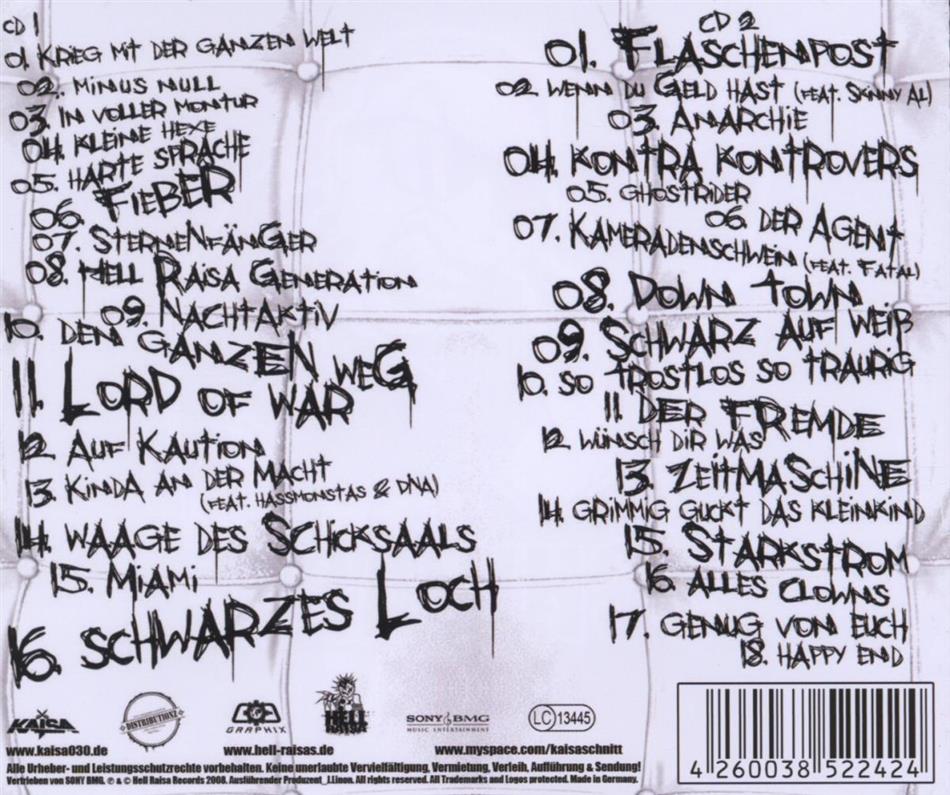 CD 1
01. KRIEG MIT DER GANZEN WELT
02. MINUS NULL
03. IN VOLLER MONTUR
04. KLEINE HEXE
05. HARTE SPRACHE
06. FIEBER
07. STERNENFÄNGER
08. HELL RAISA GENERATION
09. NACHTAKTIV
10. DEN GANZEN WEG
11. LORD OF WAR
12 AUF KAUTION
13. KINDA AN DER MACHT
(FEAT. HASSMONSTAS & DNA)
14. WAAGE DES SCHICKSAALS
15. MIAMI
16. SCHWARZES LOCH
CD 2
01. FLASCHENPOST
02 WENN DU GELD HAST (FEAT. SKINNY AL)
03. ANARCHIE
04. KONTRA KONTROVERS
05. GHOSTRIDER
06. DER AGENT
07. KAMERADENSCHWEIN (FEAT. FATAL)
08. DOWN TOWN
09. SCHWARZ AUF WEIß
10. SO TROSTLOS SO TRAURIG
11. DER FREMDE
12. WÜNSCH DIR WAS
13. ZEITMASCHINE
14. GRIMMIG GUCKT DAS KLEINKIND
15. STARKSTROM
16. ALLES CLOWNS
17. GENUG VON EUCH
18. HAPPY END
KAISA
DISTRIBUTIONZ
GRAPHIX
HELL RAISA
SONY BMG
MUSIC ENTERTAINMENT
LC 13445
www.kaisa030.de
www.hell-raisas.de
www.myspace.com/kaisaschnitt
Alle Urheber- und Leistungsschutzrechte vorbehalten. Keine unerlaubte Vervielfältigung, Vermietung, Verleih, Aufführung & Sendung!
Vertrieben von SONY BMG. ℗ & © Hell Raisa Records 2008. Ausführender Produzent_J.Linon. All rights reserved. All Trademarks and Logos protected. Made in Germany.
4 260038 522424